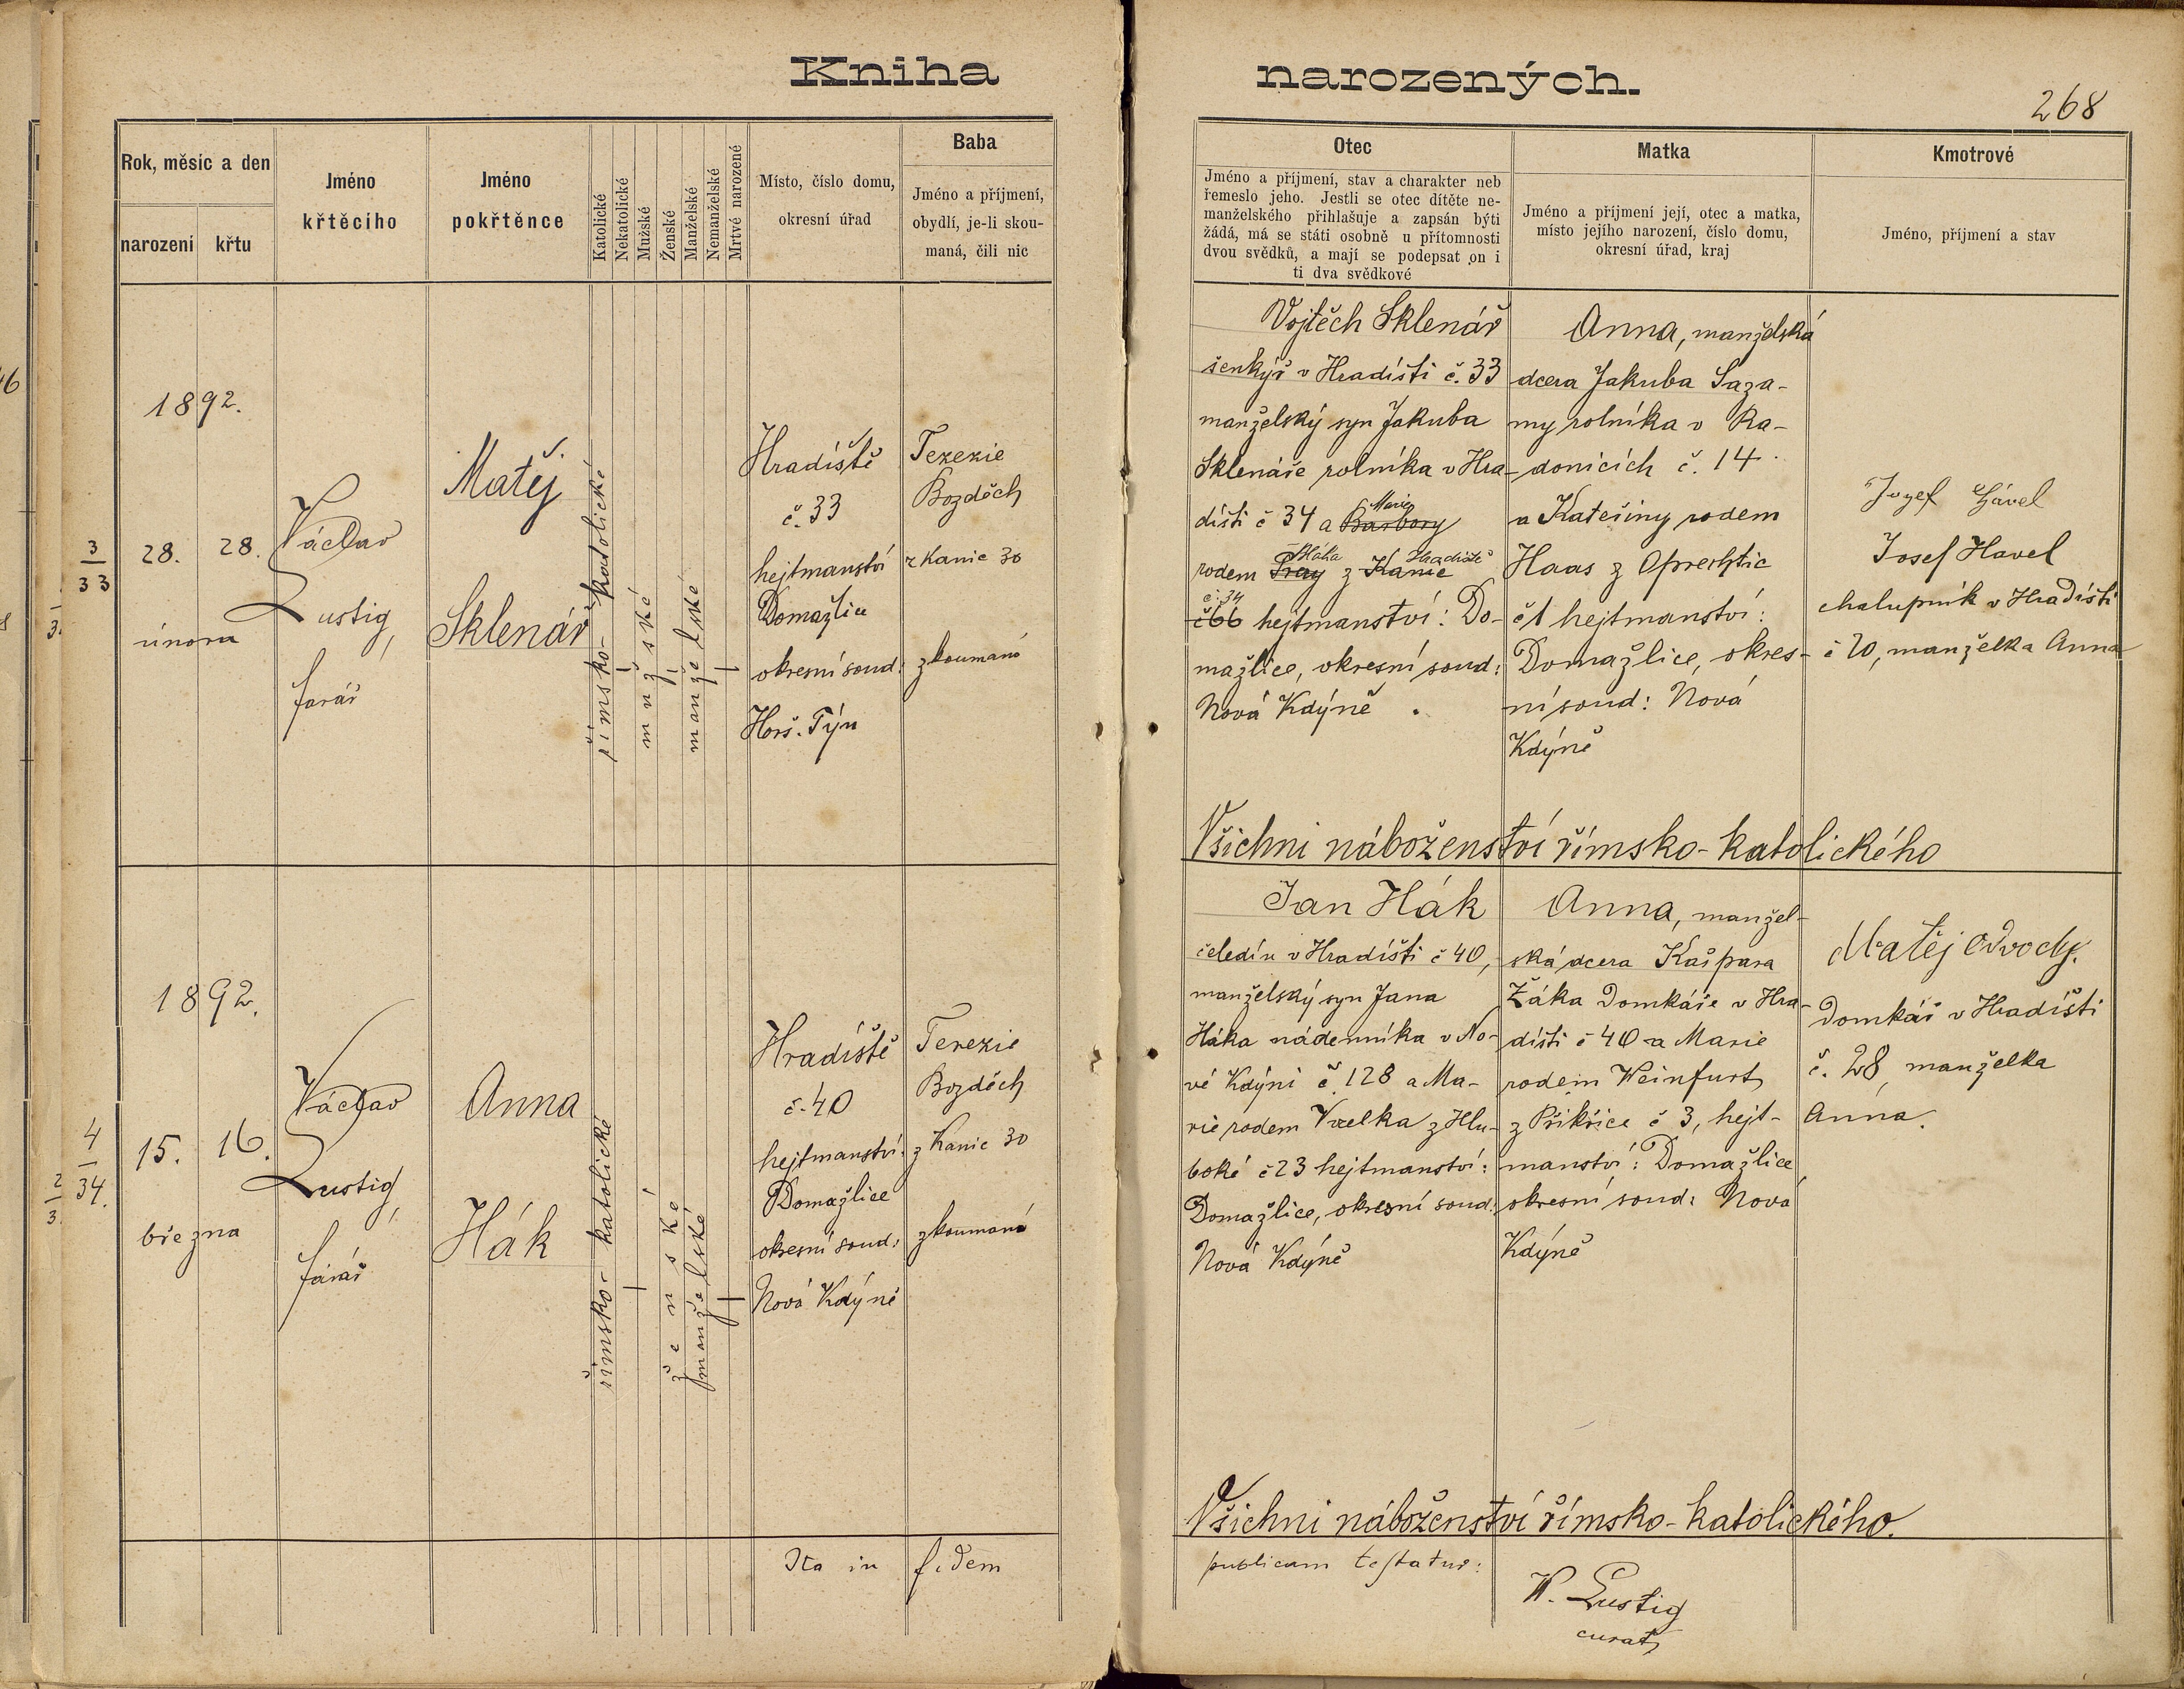 Kniha narozených.
268
Rok, měsíc a den
narození
křtu
Jméno
křtěcího
Jméno
pokřtěnce
Katolické
Nekatolické
Mužské
Ženské
Manželské
Nemanželské
Mrtvé narozené
Místo, číslo domu,
okresní úřad
Baba
Jméno a příjmení,
obydlí, je-li skou-
maná, čili nic
Otec
Jméno a příjmení, stav a charakter neb
řemeslo jeho. Jestli se otec dítěte ne-
manželského přihlašuje a zapsán býti
žádá, má se státi osobně u přítomnosti
dvou svědků, a mají se podepsat on i
ti dva svědkové
Matka
Jméno a příjmení její, otec a matka,
místo jejího narození, číslo domu,
okresní úřad, kraj
Kmotrové
Jméno, příjmení a stav
3
33
1892.
28.
28.
února
Václav
Lustig,
farář
Matěj
Sklenář
římsko-katolické
mužské
manželské
Hradiště
č. 33
hejtmanství
Domažlice
okresní soud:
Horš. Týn
Terezie
Bozděch
z Kanic 30
zkoumaná
Vojtěch Sklenář
šenkýř v Hradišti č. 33
manželský syn Jakuba
Sklenáře rolníka v Hra-
dišti č 34 a Barbory
Marie
rodem z Kanic
Bláha Hradiště
č. 34
č 66 hejtmanství: Do-
mažlice, okresní soud:
Nová Kdýně.
Anna, manželská
dcera Jakuba Saza-
my rolníka v Ra-
donicích č. 14.
a Kateřiny rodem
Haas z Oprechtic
č 1 hejtmanství:
Domažlice, okres-
ní soud: Nová
Kdýně
Jozef Hável
Josef Havel
chalupník v Hradišti
č 20, manželka Anna
Všichni náboženství římsko-katolického
4
34.
1892.
15.
16.
března
Václav
Lustig,
farář
Anna
Hák
římsko-katolické
ženské
manželské
Hradiště
č. 40
hejtmanství:
Domažlice
okresní soud:
Nová Kdýně
Terezie
Bozděch
z Kanic 30
zkoumaná
Jan Hák
čeledín v Hradišti č 40,
manželský syn Jana
Háka nádenníka v No-
vé Kdýni č. 128 a Ma-
rie rodem z Hlu-
boké č 23 hejtmanství:
Domažlice, okresní soud:
Nová Kdýně
Anna, manžel-
ská dcera Kašpara
Žáka Domkáře v Hra-
dišti č 40 a Marie
rodem Weinfurt
z Přikřice č 3, hejt-
manství: Domažlice
okresní soud: Nová
Kdýně
Matěj
Domkář v Hradišti
č. 28, manželka
Anna.
Všichni náboženství římsko-katolického.
Ita in fidem publicam testatur:
W. Lustig
curat